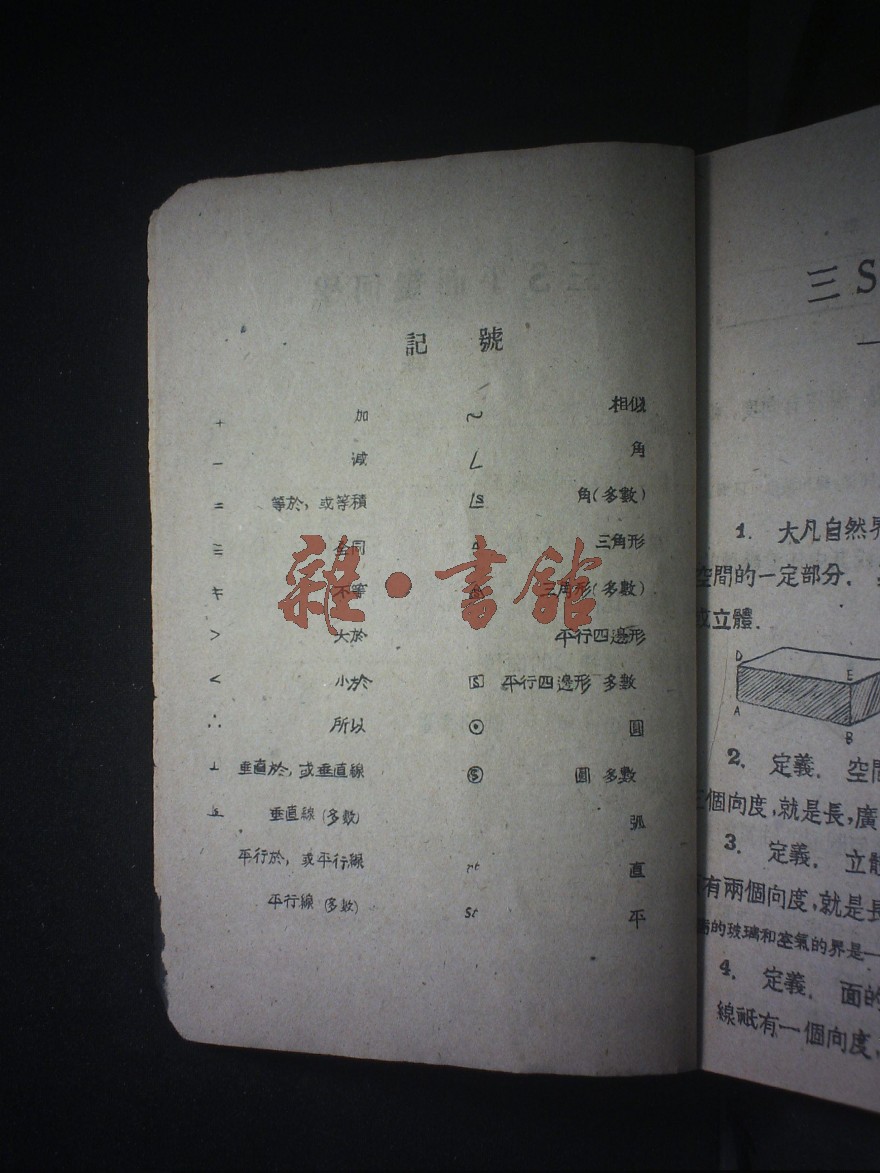 記 號
+ 加
− 減
= 等於, 或等積
≡ 全同
≠ 不等
> 大於
< 小於
∴ 所以
⊥ 垂直於, 或垂直線
垂直線 (多數)
平行於, 或平行線
平行線 (多數)
~ 相似
∠ 角
角(多數)
三角形
三角形(多數)
平行四邊形
平行四邊形 多數
⊙ 圓
Ⓢ 圓 多數
弧
rt 直
st 平
雜·書館
三S
1. 大凡自然界
空間的一定部分.
或立體.
D
E
A
B
2. 定義. 空間
三個向度,就是長,廣
3. 定義. 立體
有兩個向度,就是長
的玻璃和空氣的界是一
4. 定義. 面的
線祇有一個向度,